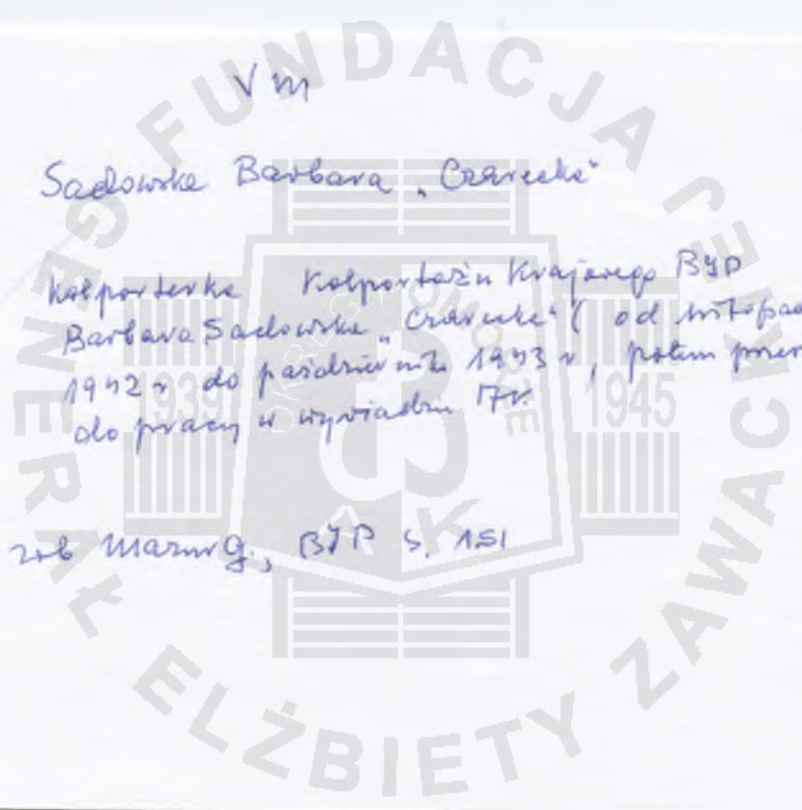 V m
Sadowska Barbara „Czarecka"
kolporterka Kolportażu Krajowego BIP
Barbara Sadowska „Czarecka" ( od listopad
1942 r do października 1943 r, potem przen
do pracy w wywiadzie
zob Mazur G., BIP s. 151
FUNDACJA GENERAŁ ELŻBIETY ZAWACKIEJ
ARCHIWUM POMORZE
1939 1945
AK